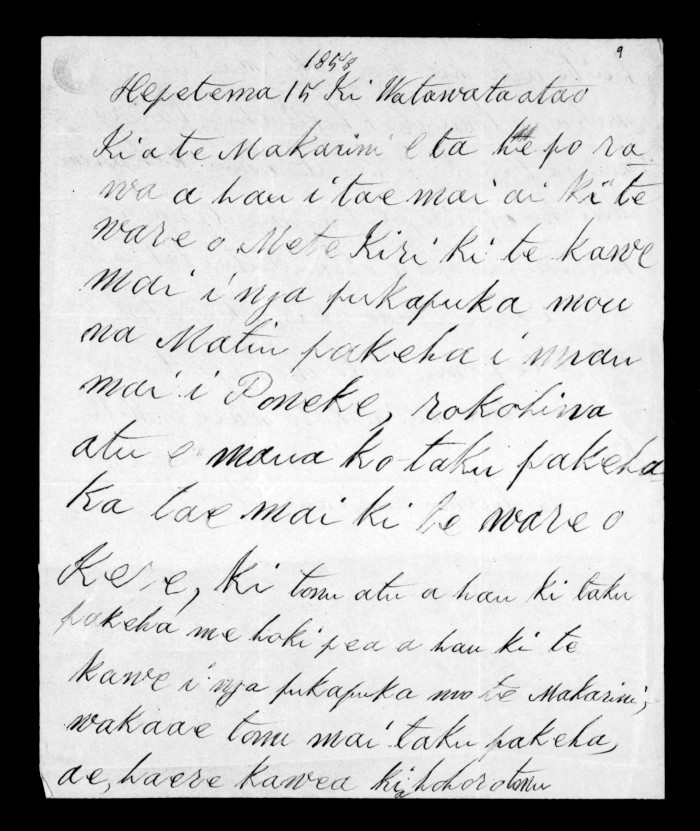 1858
9
Hepetema 15 Ki Watawataatao
Kia te Makarini E ta he po ra
wa a hau i tae mai ai ki te
ware o Mete Kiri ki te kawe
mai i nga pukapuka mou
na Matiu pakeha i mau
mai i Poneke, rokohiwa
atu e maua ko taku pakeha
ka tae mai ki te ware o
Kere, ki tonu atu a hau ki taku
pakeha me hoki pea a hau ki te
kawe i nga pukapuka mo te Makarini,
wakaae tonu mai taku pakeha,
ae, haere kawea kia hohoro tonu